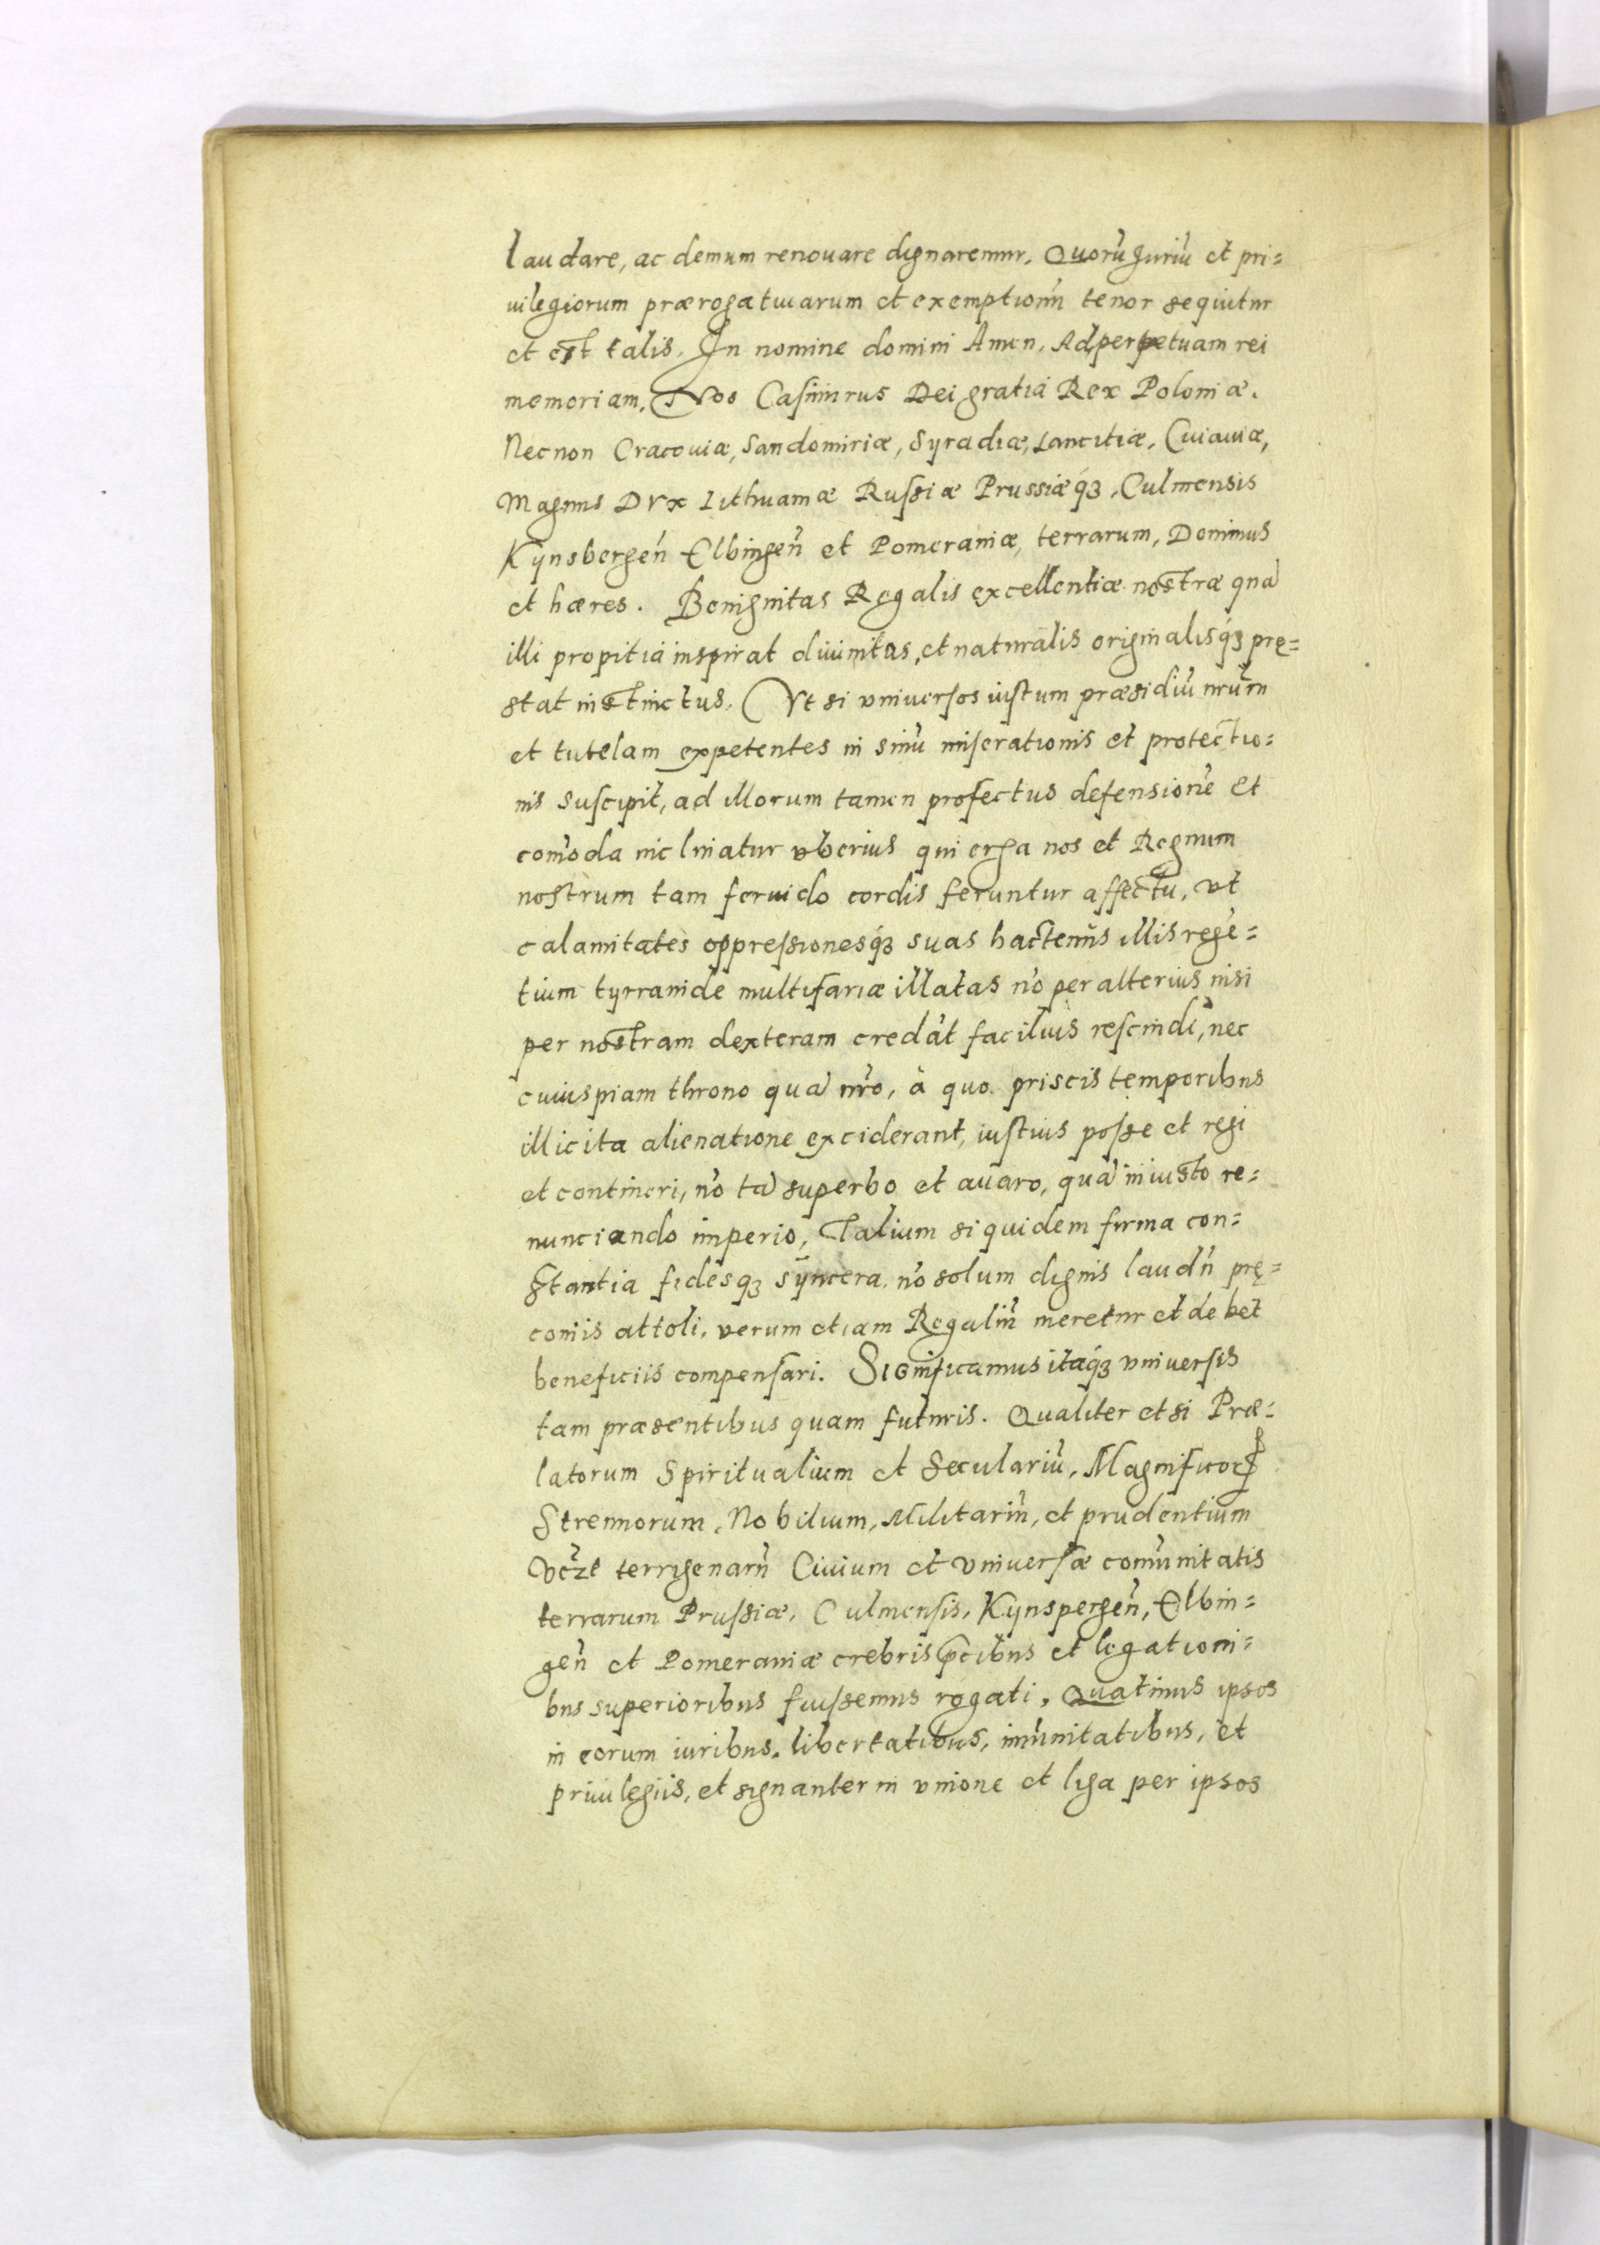 laudare, ac demum renouare dignaremur. Quorū Iuriū et pri=
uilegiorum prærogatiuarum et exemptionū tenor sequitur
et est talis. In nomine domini Amen. Ad perpetuam rei
memoriam. Nos Casimirus Dei gratia Rex Poloniæ.
Necnon Cracouiæ, Sandomiriæ, Syradiæ, Lancitiæ, Cuiauiæ,
Magnus Dux Lithuaniæ Russiæ Prussiæq3, Culmensis
Kÿnsbergeñ Elbingeñ et Pomeraniæ, terrarum, Dominus
et hæres. Benignitas Regalis excellentiæ nostræ quā
illi propitia inspirat diuinitas, et naturalis originalisq3 prę=
stat instinctus. Vt si vniuersos iustum præsidiū nr̄um
et tutelam expetentes in sinū miserationis et protectio=
nis suscipit, ad illorum tamen profectus defensionē et
com̄oda inclinatur vberius qui erga nos et Regnum
nostrum tam feruido cordis feruntur affectu, vt
calamitates oppressionesq3 suas hactenus illis regē=
tium tyrranide multifariæ illatas nō per alterius nisi
per nostram dexteram credāt facilius rescindi, nec
cuiuspiam throno quā nr̄o, à quo priscis temporibus
illicita alienatione exciderant, iustius posse et regi
et contineri, nō tā superbo et auaro, quā iniusto re=
nunciando imperio, Talium siquidem firma con=
stantia fidesq3 syncera nō solum dignis laudū prę=
coniis attoli, verum etiam Regaliū meretur et debet
beneficiis compensari. Significamus itaq3 vniuersis
tam præsentibus quam futuris. Qualiter etsi Præ=
latorum Spiritualium et Seculariū, Magnificorꝝ
Strennorum, Nobilium, Militariū, et prudentium
vc̄zt terrigenarū Ciuium et vniuersæ com̄unitatis
terrarum Prussiæ, Culmensis, Kÿnspergeñ, Elbin=
geñ et Pomeraniæ crebris p̄cibus et legationi=
bus superioribus fuissemus rogati, Quatinus ipsos
in eorum iuribus, libertatibus, im̄unitatibus, et
priuilegiis, et signanter in vnione et liga per ipsos